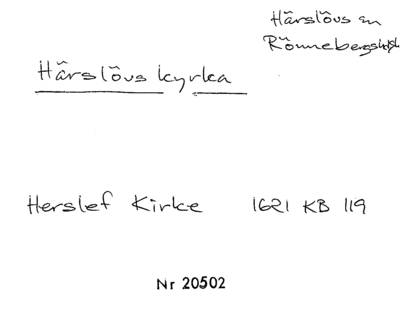 Härslövs sn
Rönnebergs hd
Härslövs kyrka
Herslef Kirke 1621 KB 119
Nr 20502